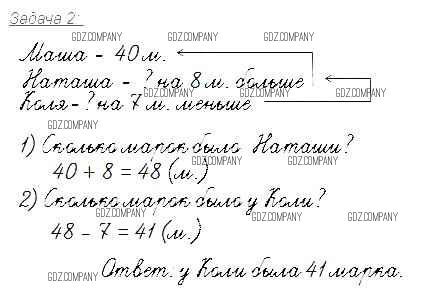 Задача 2:
GDZ.COMPANY GDZ.COMPANY GDZ.COMPANY
Маша - 40 м.
Наташа - ? на 8 м. больше
GDZ.COMPANY GDZ.COMPANY GDZ.COMPANY
Коля - ? на 7 м. меньше
GDZ.COMPANY
1) Сколько марок было Наташи?
GDZ.COMPANY GDZ.COMPANY
40 + 8 = 48 (м.)
2) Сколько марок было у Коли?
GDZ.COMPANY GDZ.COMPANY GDZ.COMPANY
48 - 7 = 41 (м.)
GDZ.COMPANY
Ответ. у Коли была 41 марка.